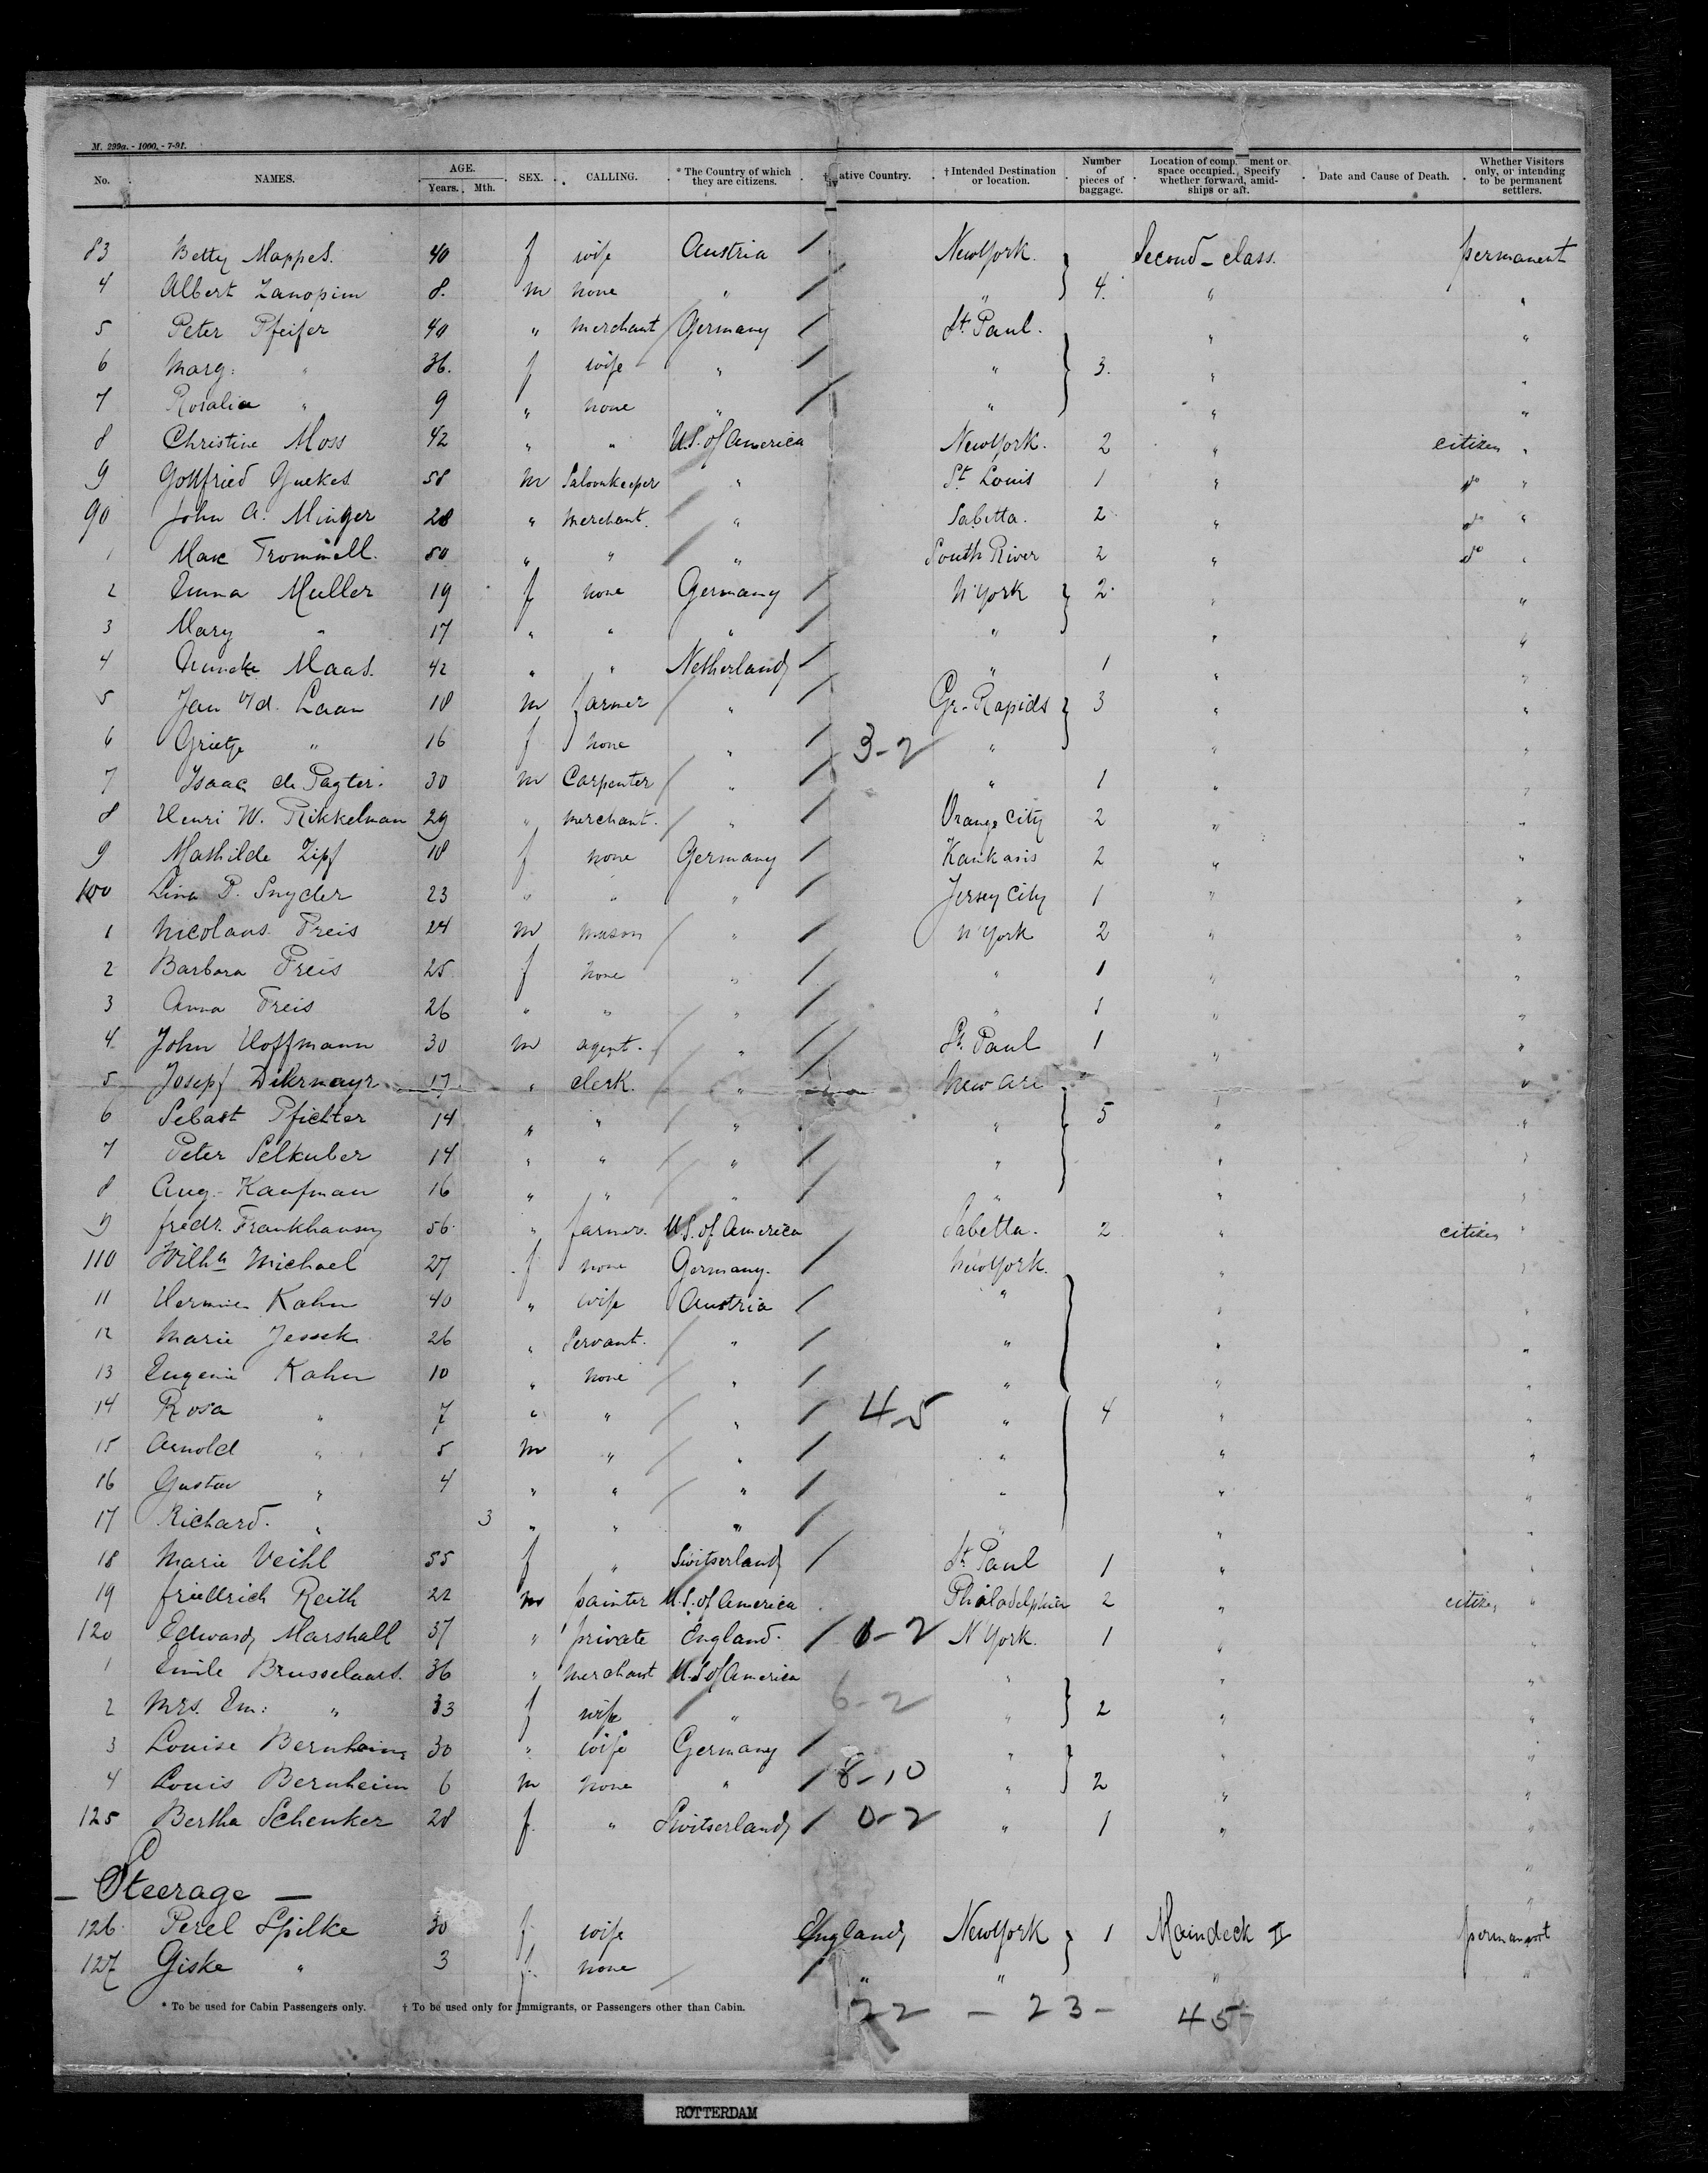 M. 299a. - 1000. - 7-91.
No. NAMES. AGE. Years. Mth. SEX. CALLING. * The Country of which they are citizens. ative Country. † Intended Destination or location. Number of pieces of baggage. Location of comp ment or space occupied. Specify whether forward, amidships or aft. Date and Cause of Death. Whether Visitors only, or intending to be permanent settlers.
83 Betty Mappes. 40 f wife Austria / New York. Second-class. permanent
4 Albert Zanopim 8. m none " / " 4. " "
5 Peter Pfeifer 40 " merchant Germany / St. Paul. " "
6 Marg: " 36. f wife " / " 3. " "
7 Rosalia " 9 " none " / " " "
8 Christine Moss 42 " " U.S. of America New York. 2 " citizen "
9 Gottfried Guekes 58 m Saloonkeeper " St Louis 1 " do "
90 John A. Minger 28 " merchant. " Sabetta. 2 " do "
1 Max Trommell. 50 " " " South River 2 " do "
2 Emma Muller 19 f none Germany / N'York 2 " "
3 Mary " 17 " " " / " " "
4 Maas. 42 " " Netherland / " 1 " "
5 Jan v/d. Laan 18 m farmer " / Gr. Rapids 3 " "
6 Grietje " 16 f none " / 3-2 " " "
7 Isaac de Pagter. 30 m Carpenter " / " 1 " "
8 Henri W. Rikkelman 29 " merchant. " / Orange City 2 " "
9 Mathilde Zipf 18 f none Germany / Kankasis 2 " "
100 Lina P. Snyder 23 " " " / Jersey City 1 " "
1 Nicolaus Freis 24 m mason " / N'York 2 " "
2 Barbara Freis 25 f none " / " 1 " "
3 Anna Freis 26 " " " / " 1 " "
4 John Hoffmann 30 m agent. " / St. Paul 1 " "
5 Josepf Dikrmayr 17 " clerk. " / New Ark " "
6 Sebast Pfichter 14 " " " " 5 " "
7 Peter Selkuber 14 " " " / " " "
8 Aug. Kaufman 16 " " " / " " "
9 fredr. Frankhauser 56. " farmer. U.S. of America Sabetta. 2 " citizen "
110 Wilha Michael 27 f none Germany. / New York. " "
11 Hermine Kahn 40 " wife Austria / " " "
12 Marie Jessek 26 " Servant. " / " " "
13 Eugenie Kahn 10 " none " / " " "
14 Rosa " 7 " " " / 4-5 " 4 " "
15 Arnold " 5 m " " / " " "
16 Gustav " 4 " " " / " " "
17 Richard. " 3 " " " / " " "
18 Marie Veihl 55 f " Switserland / St. Paul 1 " "
19 friedrich Reith 22 m painter U.S. of America Philadelphia 2 " citizen "
120 Edward Marshall 37 " private England. / 0-2 N York. 1 " "
1 Emile Brusselaars. 36 " merchant U.S of America " " "
2 Mrs. Em: " 33 f wife " 6-2 " 2 " "
3 Louise Bernheim 30 " wife Germany / " " "
4 Louis Bernheim 6 m none " / 8-10 " 2 " "
125 Bertha Schenker 28 f. " Switserland / 0-2 " 1 " "
— Steerage —
126 Perel Spilke 30 f. wife England New York 1 Maindeck II permanent
127 Giske " 3 f. none / " " " "
* To be used for Cabin Passengers only. † To be used only for Immigrants, or Passengers other than Cabin.
22 — 23 — 45
ROTTERDAM